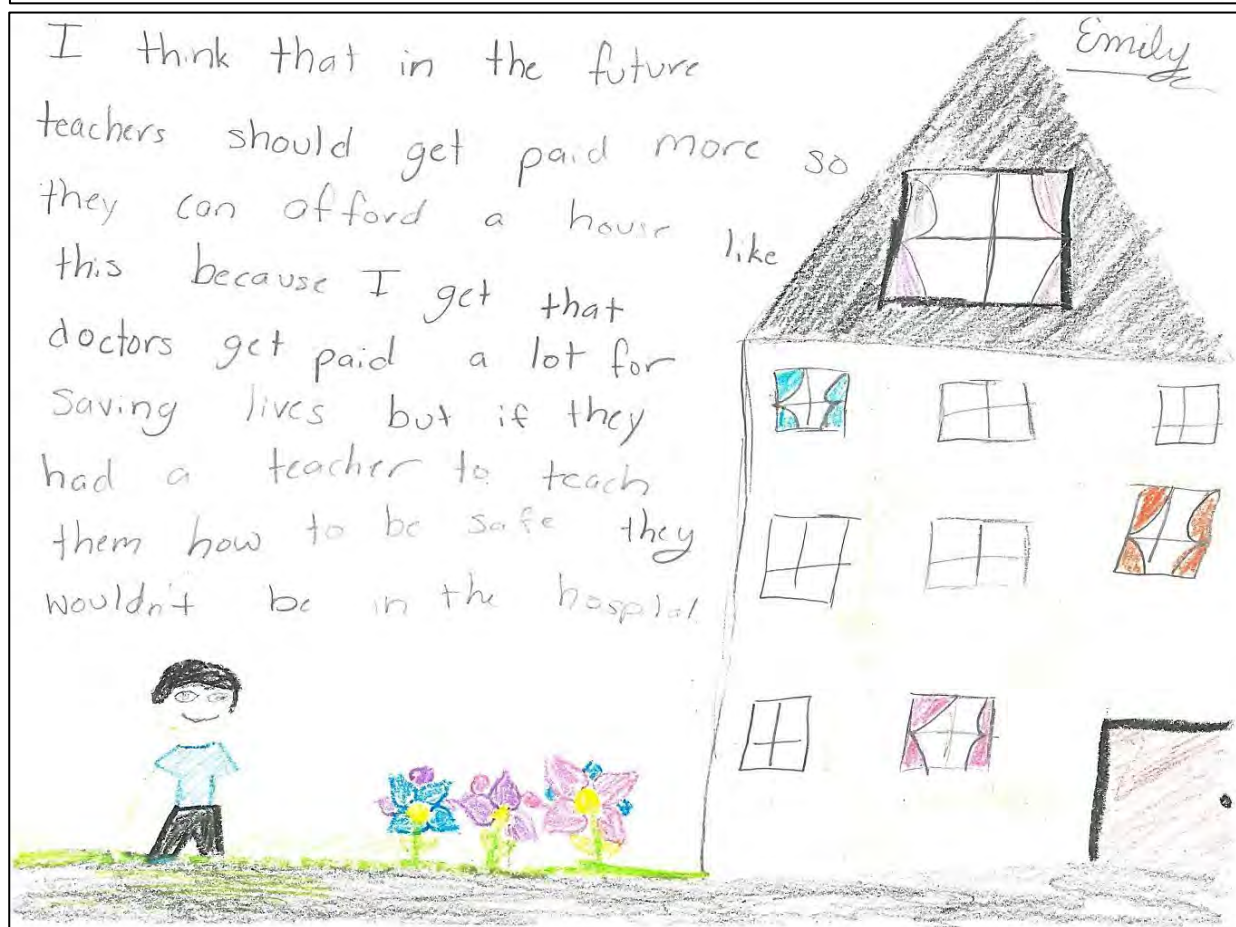 Emily
I think that in the future
teachers should get paid more so
they can afford a house like
this because I get that
doctors get paid a lot for
saving lives but if they
had a teacher to teach
them how to be safe they
wouldn't be in the hospital